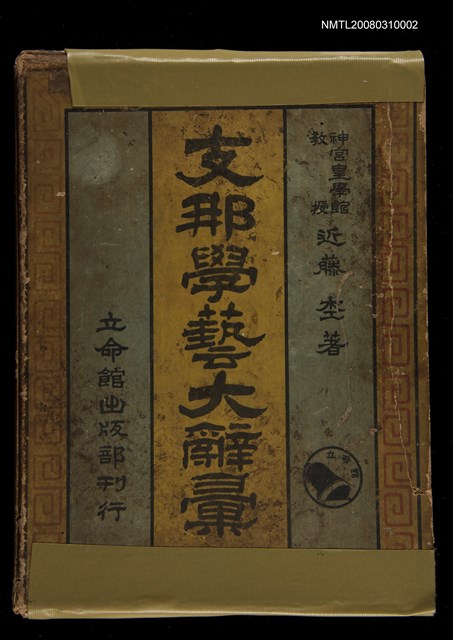 NMTL20080310002
神宮皇學館
教授
近藤杢著
支那學藝大辭彙
立命館出版部刊行
立命館